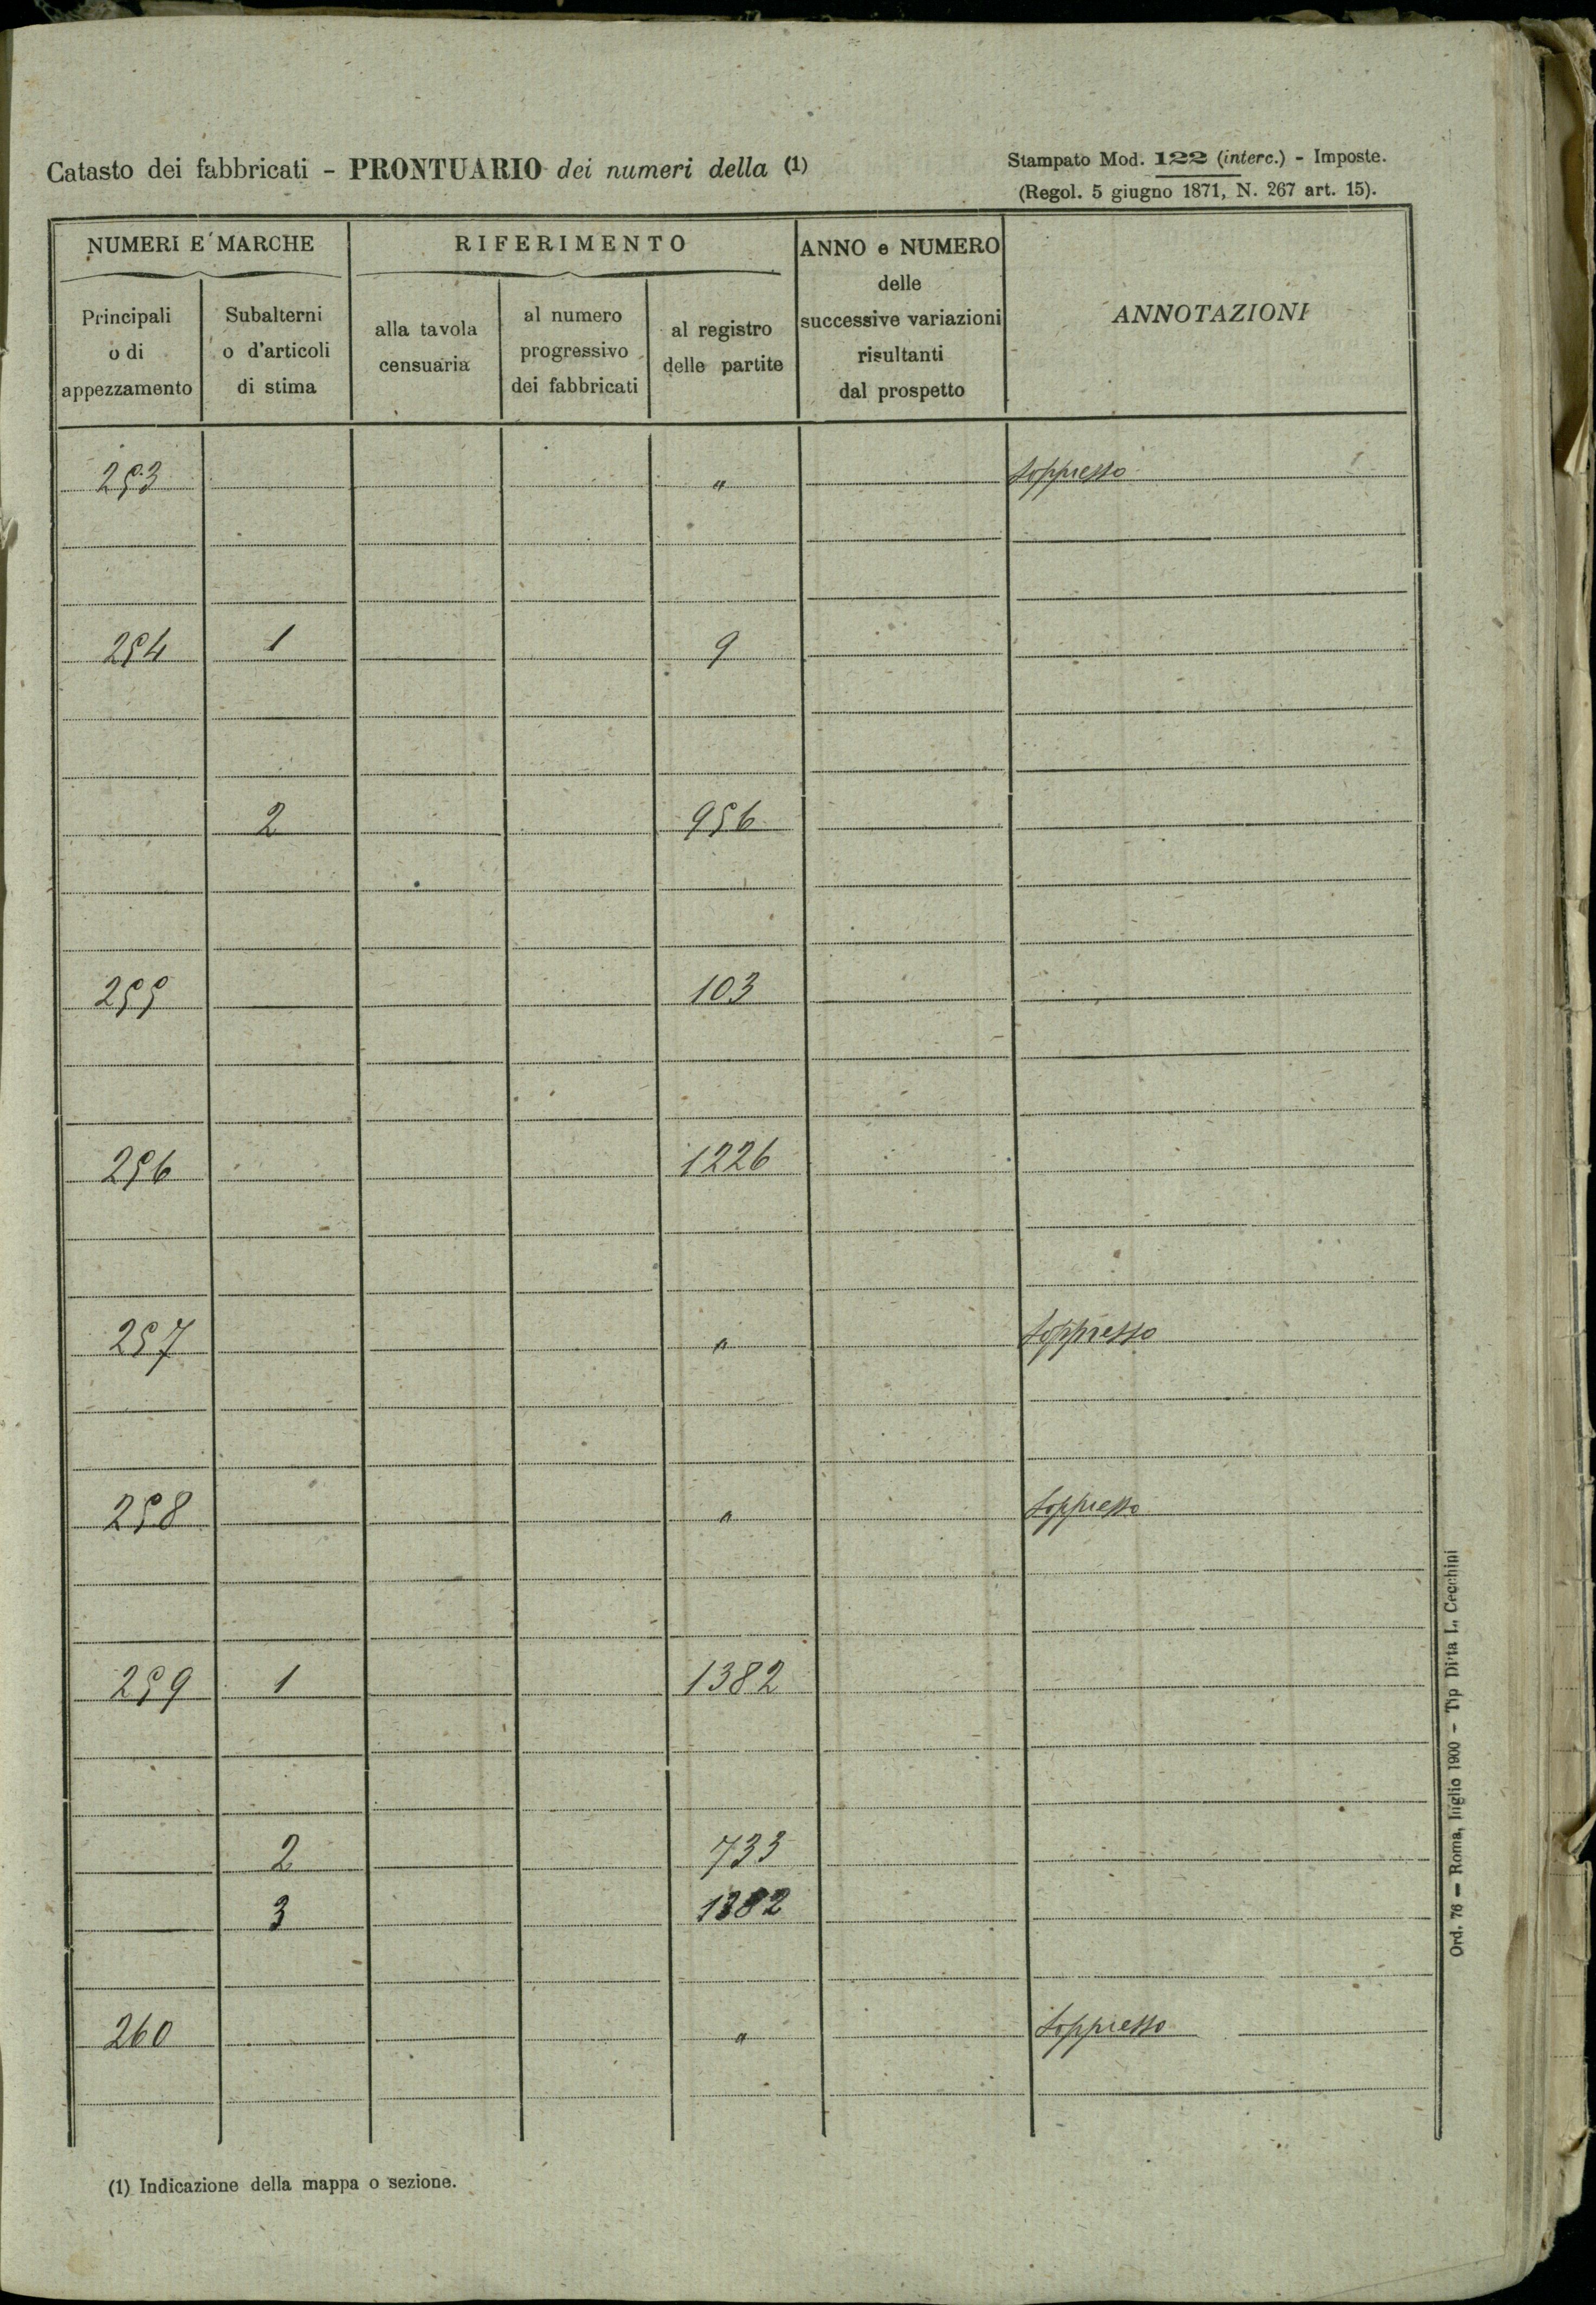 Catasto dei fabbricati - PRONTUARIO dei numeri della (1)
Stampato Mod. 122 (interc.) - Imposte.
(Regol. 5 giugno 1871, N. 267 art. 15).
NUMERI E MARCHE
RIFERIMENTO
ANNO e NUMERO
delle
successive variazioni
risultanti
dal prospetto
ANNOTAZIONI
Principali
o di
appezzamento
Subalterni
o d'articoli
di stima
alla tavola
censuaria
al numero
progressivo
dei fabbricati
al registro
delle partite
253 " soppresso
254 1 9
2 956
255 103
256 1226
257 " soppresso
258 " soppresso
259 1 1382
2 733
3 1382
260 " soppresso
(1) Indicazione della mappa o sezione.
Ord. 76 - Roma, luglio 1900 - Tip Ditta L. Cecchini